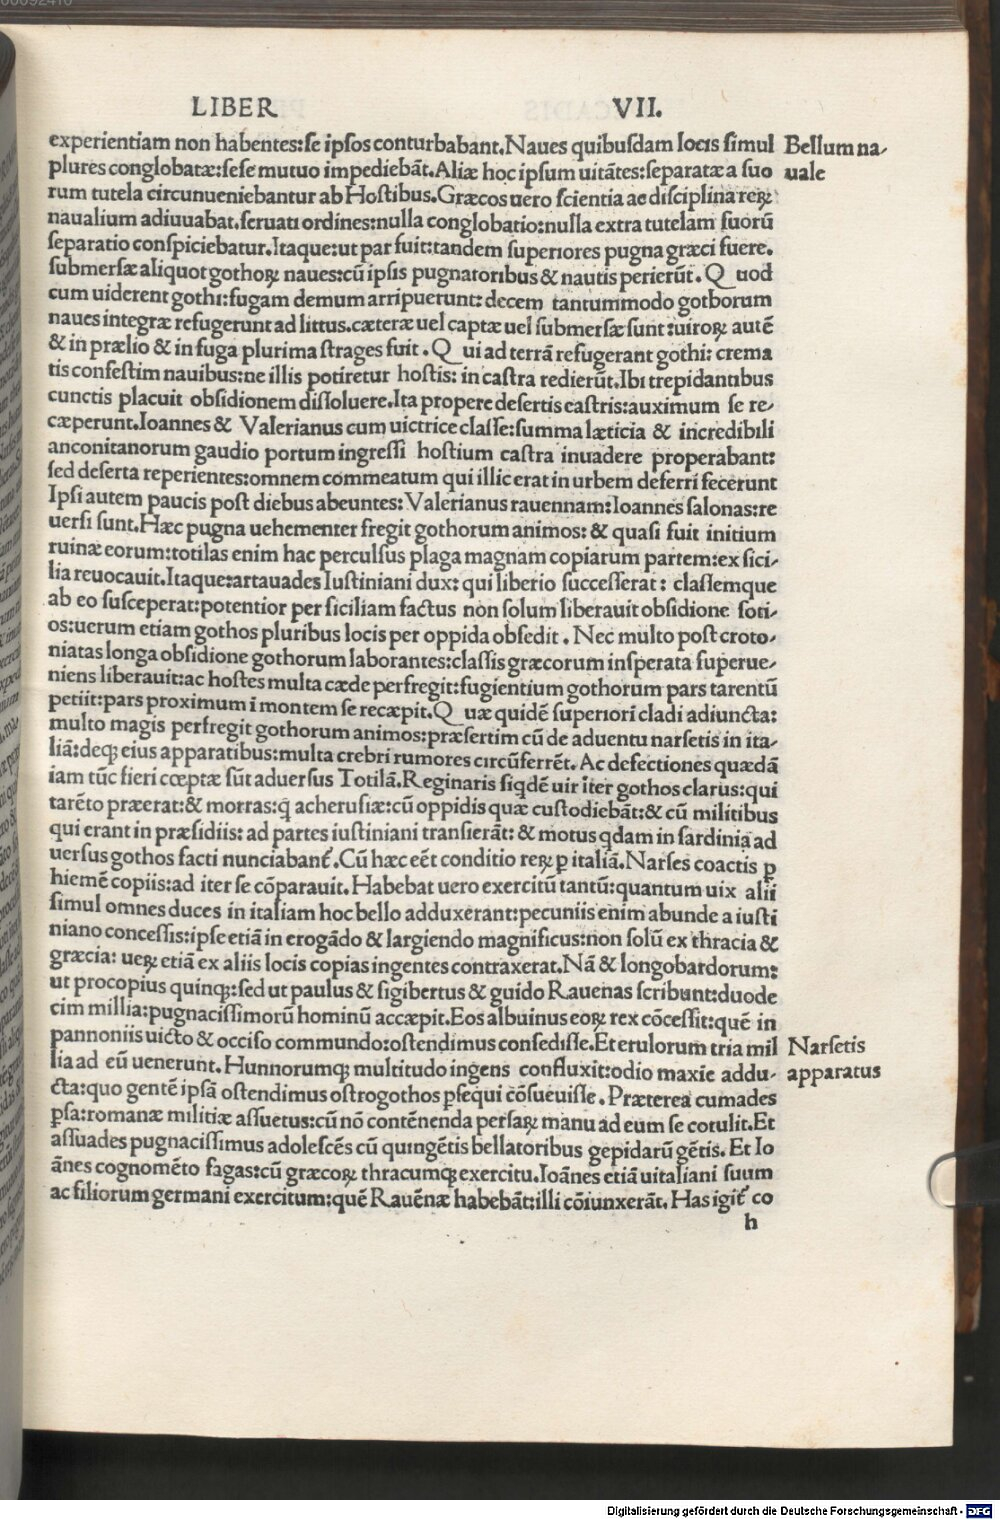 LIBER VII.
experientiam non habentes:se ipsos conturbabant.Naues quibusdam locis simul
plures conglobatæ:sese mutuo impediebāt.Aliæ hoc ipsum uitātes:separatæ a suo
rum tutela circunueniebantur ab Hostibus.Græcos uero scientia ac disciplina reꝝ
naualium adiuuabat.seruati ordines:nulla conglobatio:nulla extra tutelam suorū
separatio conspiciebatur.Itaque:ut par fuit:tandem superiores pugna græci fuere.
submersæ aliquot gothoꝝ naues:cū ipsis pugnatoribus & nautis perierūt.Q uod
cum uiderent gothi:fugam demum arripuerunt:decem tantummodo gothorum
naues integræ refugerunt ad littus.cæteræ uel captæ uel submersæ sunt:uiroꝝ autē
& in prælio & in fuga plurima strages fuit.Q ui ad terrā refugerant gothi:crema
tis confestim nauibus:ne illis potiretur hostis:in castra redierūt.Ibi trepidantibus
cunctis placuit obsidionem dissoluere.Ita propere desertis castris:auximum se re-
cæperunt.Ioannes & Valerianus cum uictrice classe:summa læticia & incredibili
anconitanorum gaudio portum ingressi hostium castra inuadere properabant:
sed deserta reperientes:omnem commeatum qui illic erat in urbem deferri fecerunt
Ipsi autem paucis post diebus abeuntes:Valerianus rauennam:Ioannes salonas:re
uersi sunt.Hæc pugna uehementer fregit gothorum animos:& quasi fuit initium
ruinæ eorum:totilas enim hac perculsus plaga magnam copiarum partem:ex sici-
lia reuocauit.Itaque:artauades Iustiniani dux:qui liberio successerat:classemque
ab eo susceperat:potentior per siciliam factus non solum liberauit obsidione soti-
os:uerum etiam gothos pluribus locis per oppida obsedit.Nec multo post croto-
niatas longa obsidione gothorum laborantes:classis græcorum insperata superue-
niens liberauit:ac hostes multa cæde perfregit:fugientium gothorum pars tarentū
petiit:pars proximum ī montem se recæpit.Q uæ quidē superiori cladi adiuncta:
multo magis perfregit gothorum animos:præsertim cū de aduentu narsetis in ita-
liā:deqꝫ eius apparatibus:multa crebri rumores circūferrēt.Ac defectiones quædā
iam tūc fieri cœptæ sūt aduersus Totilā.Reginaris siqdē uir iter gothos clarus:qui
tarēto præerat:& morras:q̄ acherusiæ:cū oppidis quæ custodiebāt:& cū militibus
qui erant in præsidiis:ad partes iustiniani transierāt:& motus qdam in sardinia ad
uersus gothos facti nunciabant᷑.Cū hæc eēt conditio reꝝ ꝑ italiā.Narses coactis ꝑ
hiemē copiis:ad iter se cōparauit.Habebat uero exercitū tantū:quantum uix alii
simul omnes duces in italiam hoc bello adduxerant:pecuniis enim abunde a iusti
niano concessis:ipse etiā in erogādo & largiendo magnificus:non solū ex thracia &
græcia:ueꝝ etiā ex aliis locis copias ingentes contraxerat.Nā & longobardorum:
ut procopius quinqꝫ:sed ut paulus & sigibertus & guido Rauēnas scribunt:duode
cim millia:pugnacissimorū hominū accæpit.Eos albuinus eoꝝ rex cōcessit:quē in
pannoniis uicto & occiso commundo:ostendimus consedisse.Et erulorum tria mil
lia ad eū uenerunt.Hunnorumqꝫ multitudo ingens confluxit:odio maxīe addu-
cta:quo gentē ipsā ostendimus ostrogothos ꝑsequi cōsueuisse.Præterea cumades
ꝑsa:romanæ militiæ assuetus:cū nō contēnenda persaꝝ manu ad eum se cotulit.Et
assuades pugnacissimus adolescēs cū quingētis bellatoribus gepidarū gētis.Et Io
ānes cognomēto fagas:cū græcoꝝ thracumqꝫ exercitu.Ioānes etiā uitaliani suum
ac filiorum germani exercitum:quē Rauēnæ habebāt:illi cōiunxerāt.Has igit᷑ co
h
Bellum na-
uale
Narsetis
apparatus
Digitalisierung gefördert durch die Deutsche Forschungsgemeinschaft - DFG